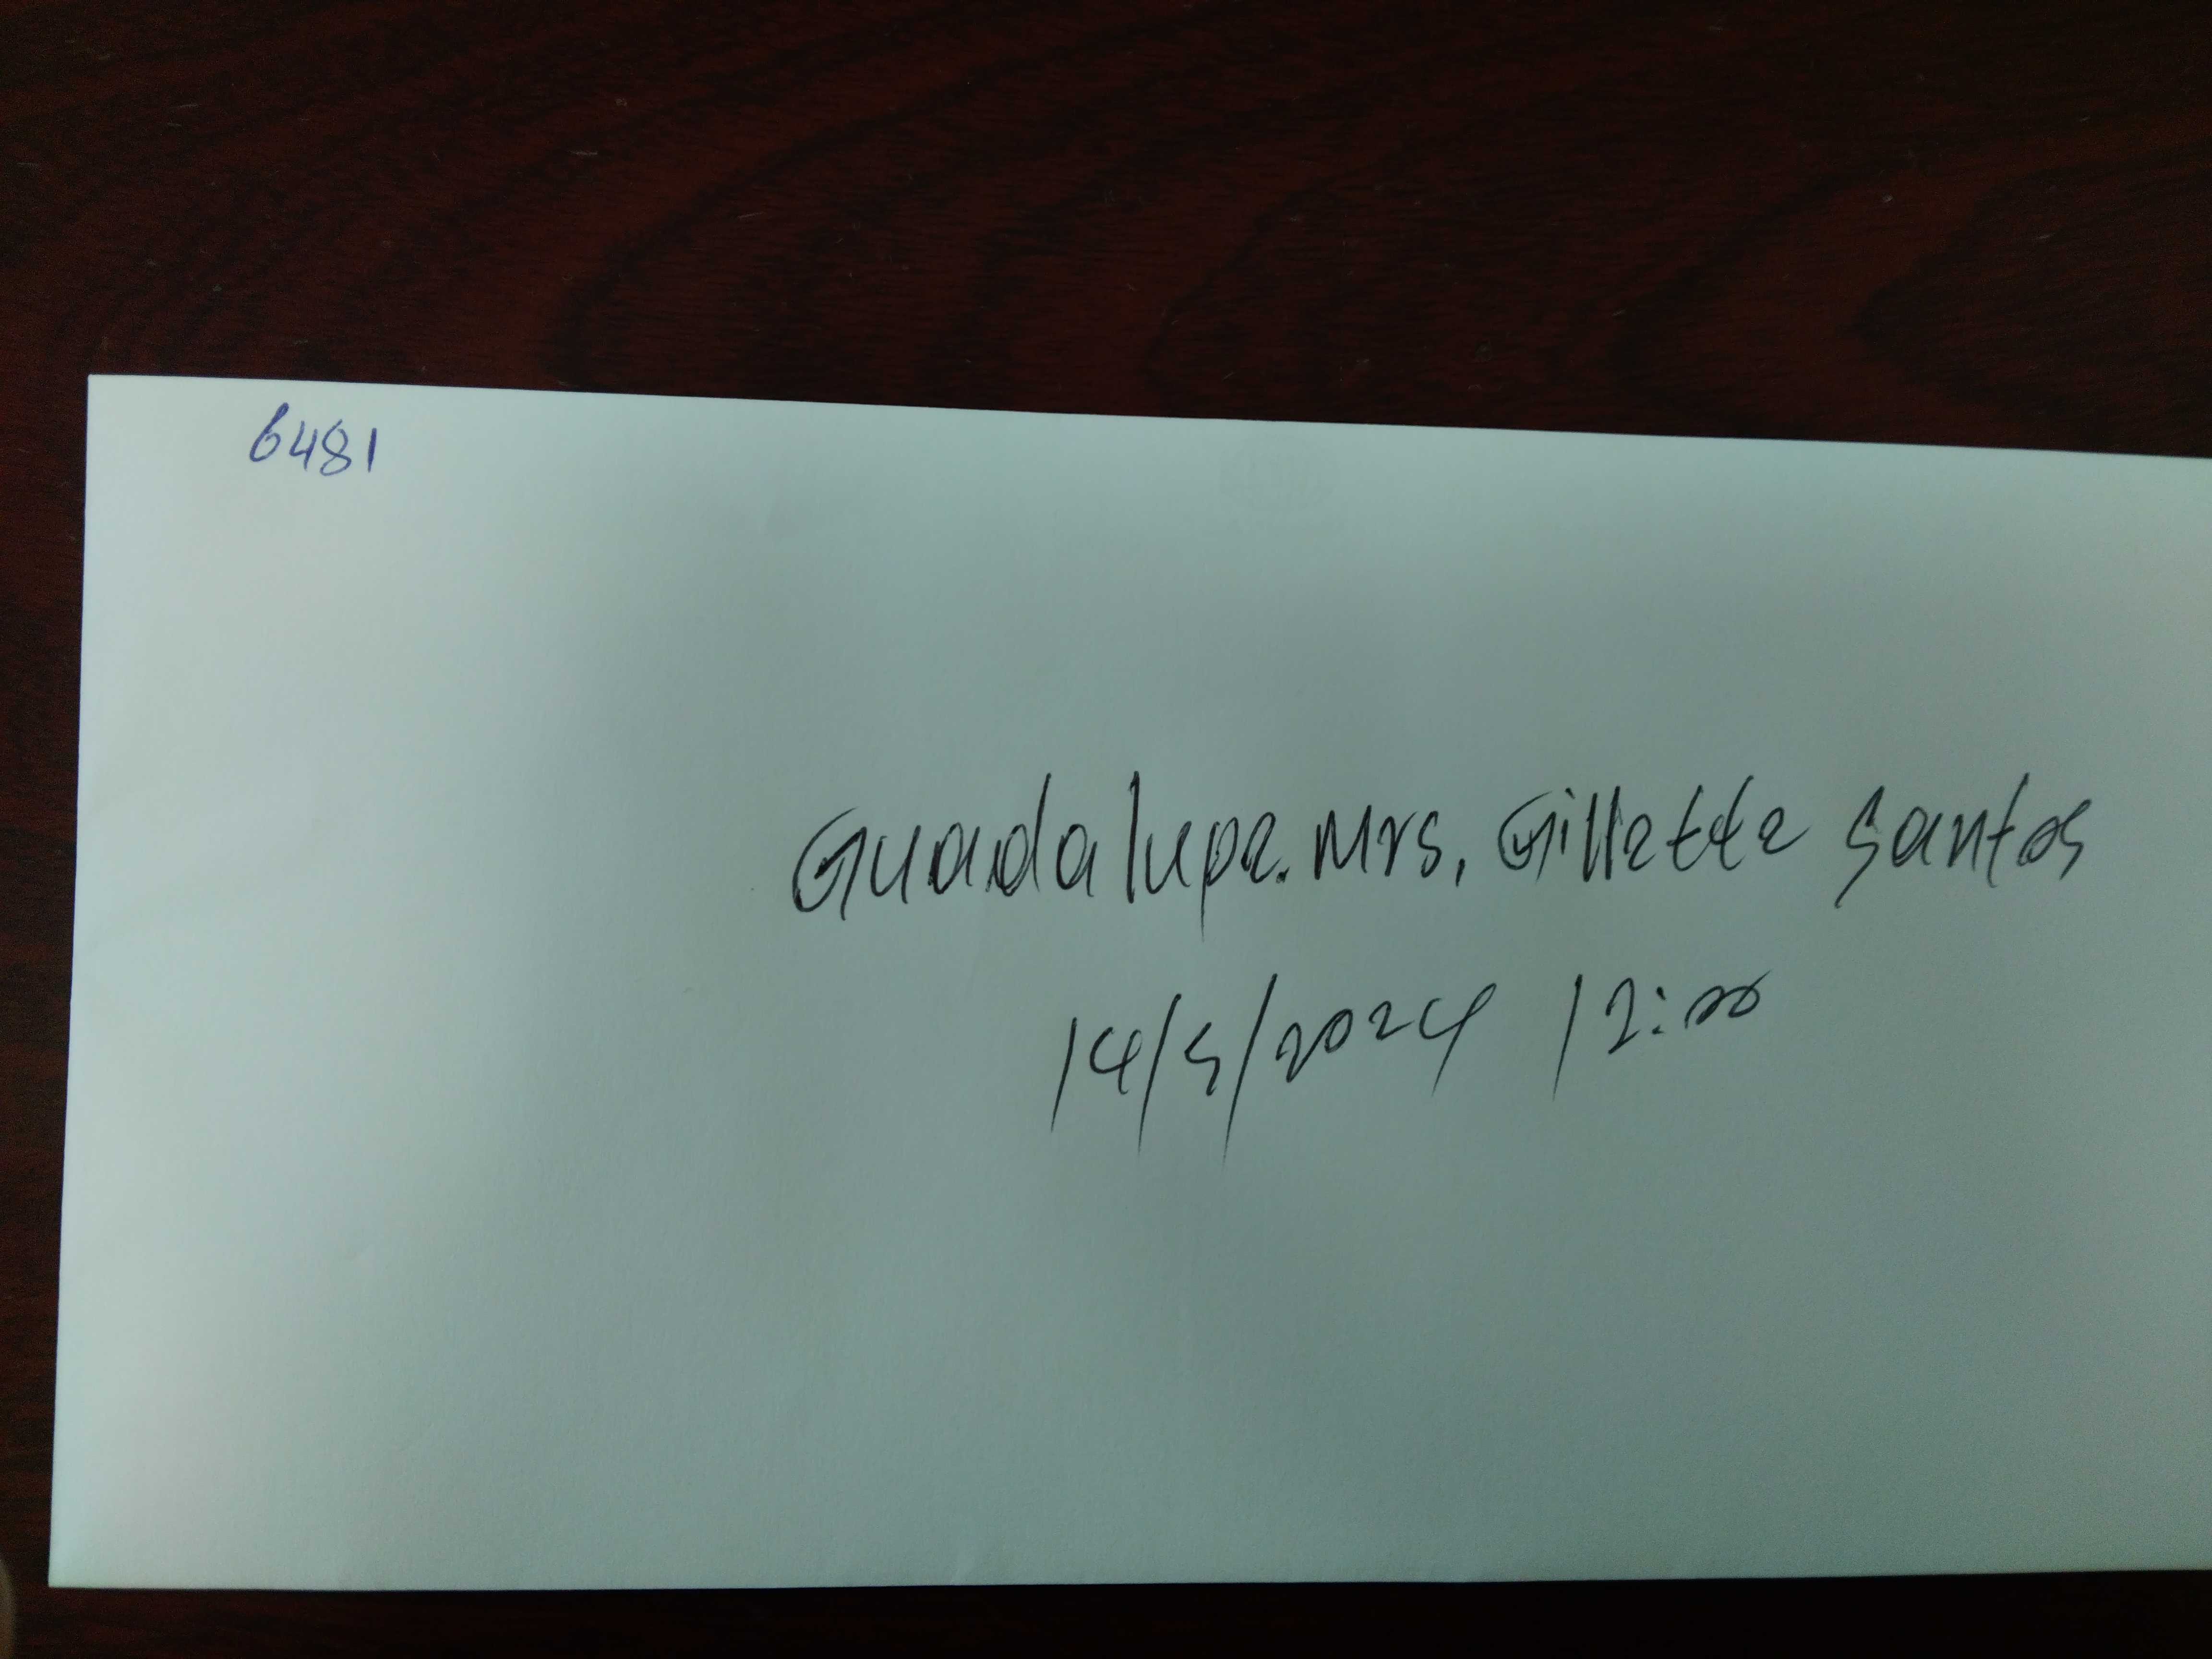 6481
Guadalupe. Mrs. Gillette Santos
14/5/2024 12:00